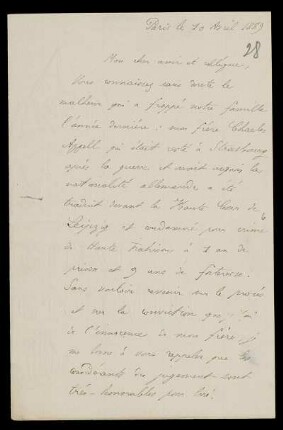 Paris le 10 Avril 1889
28
Mon cher ami et collègue,
Vous connaissez sans doute le
malheur qui a frappé notre famille
l'année dernière : mon frère Charles
Appell qui était resté à Strasbourg
après la guerre et avait acquis la
nationalité allemande a été
traduit devant la Haute Cour de
Leipzig et condamné pour crime
de Haute Trahison à 1 an de
prison et 9 ans de forteresse.
Sans vouloir revenir sur le procès
et sur la conviction que j'ai
de l'innocence de mon frère, je
me borne à vous rappeler que les
considérants du jugement sont
très-honorables pour lui.